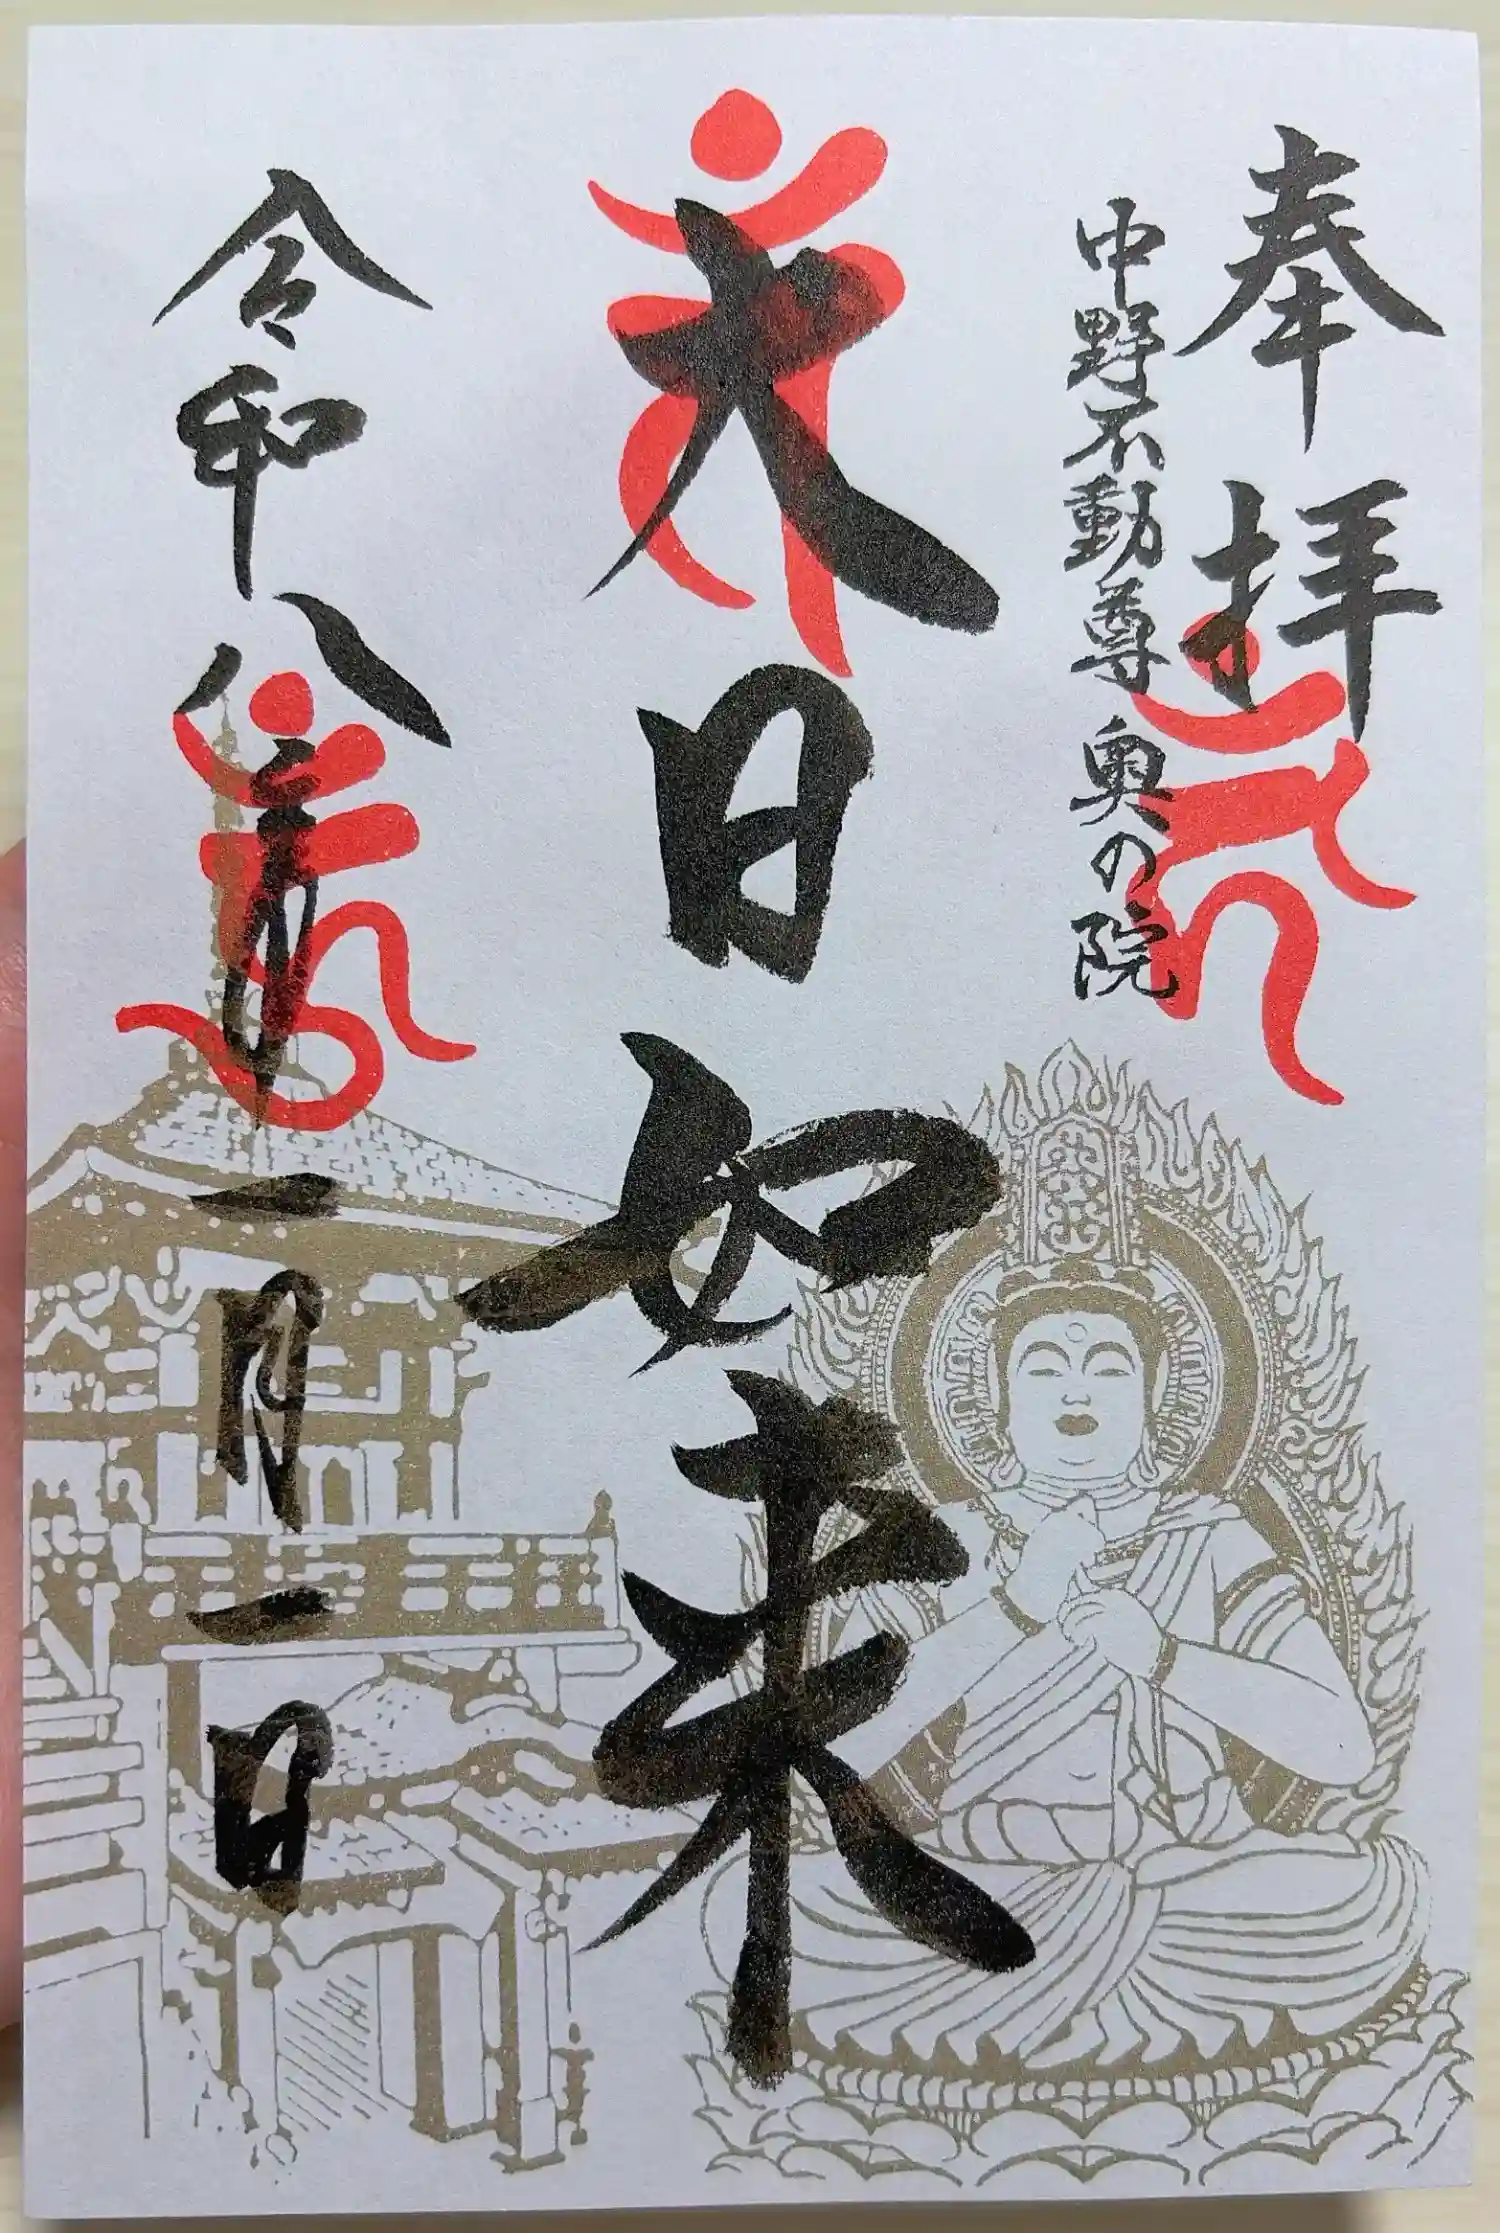 奉拝
中野不動尊 奥の院
大日如来
令和八年一月一日